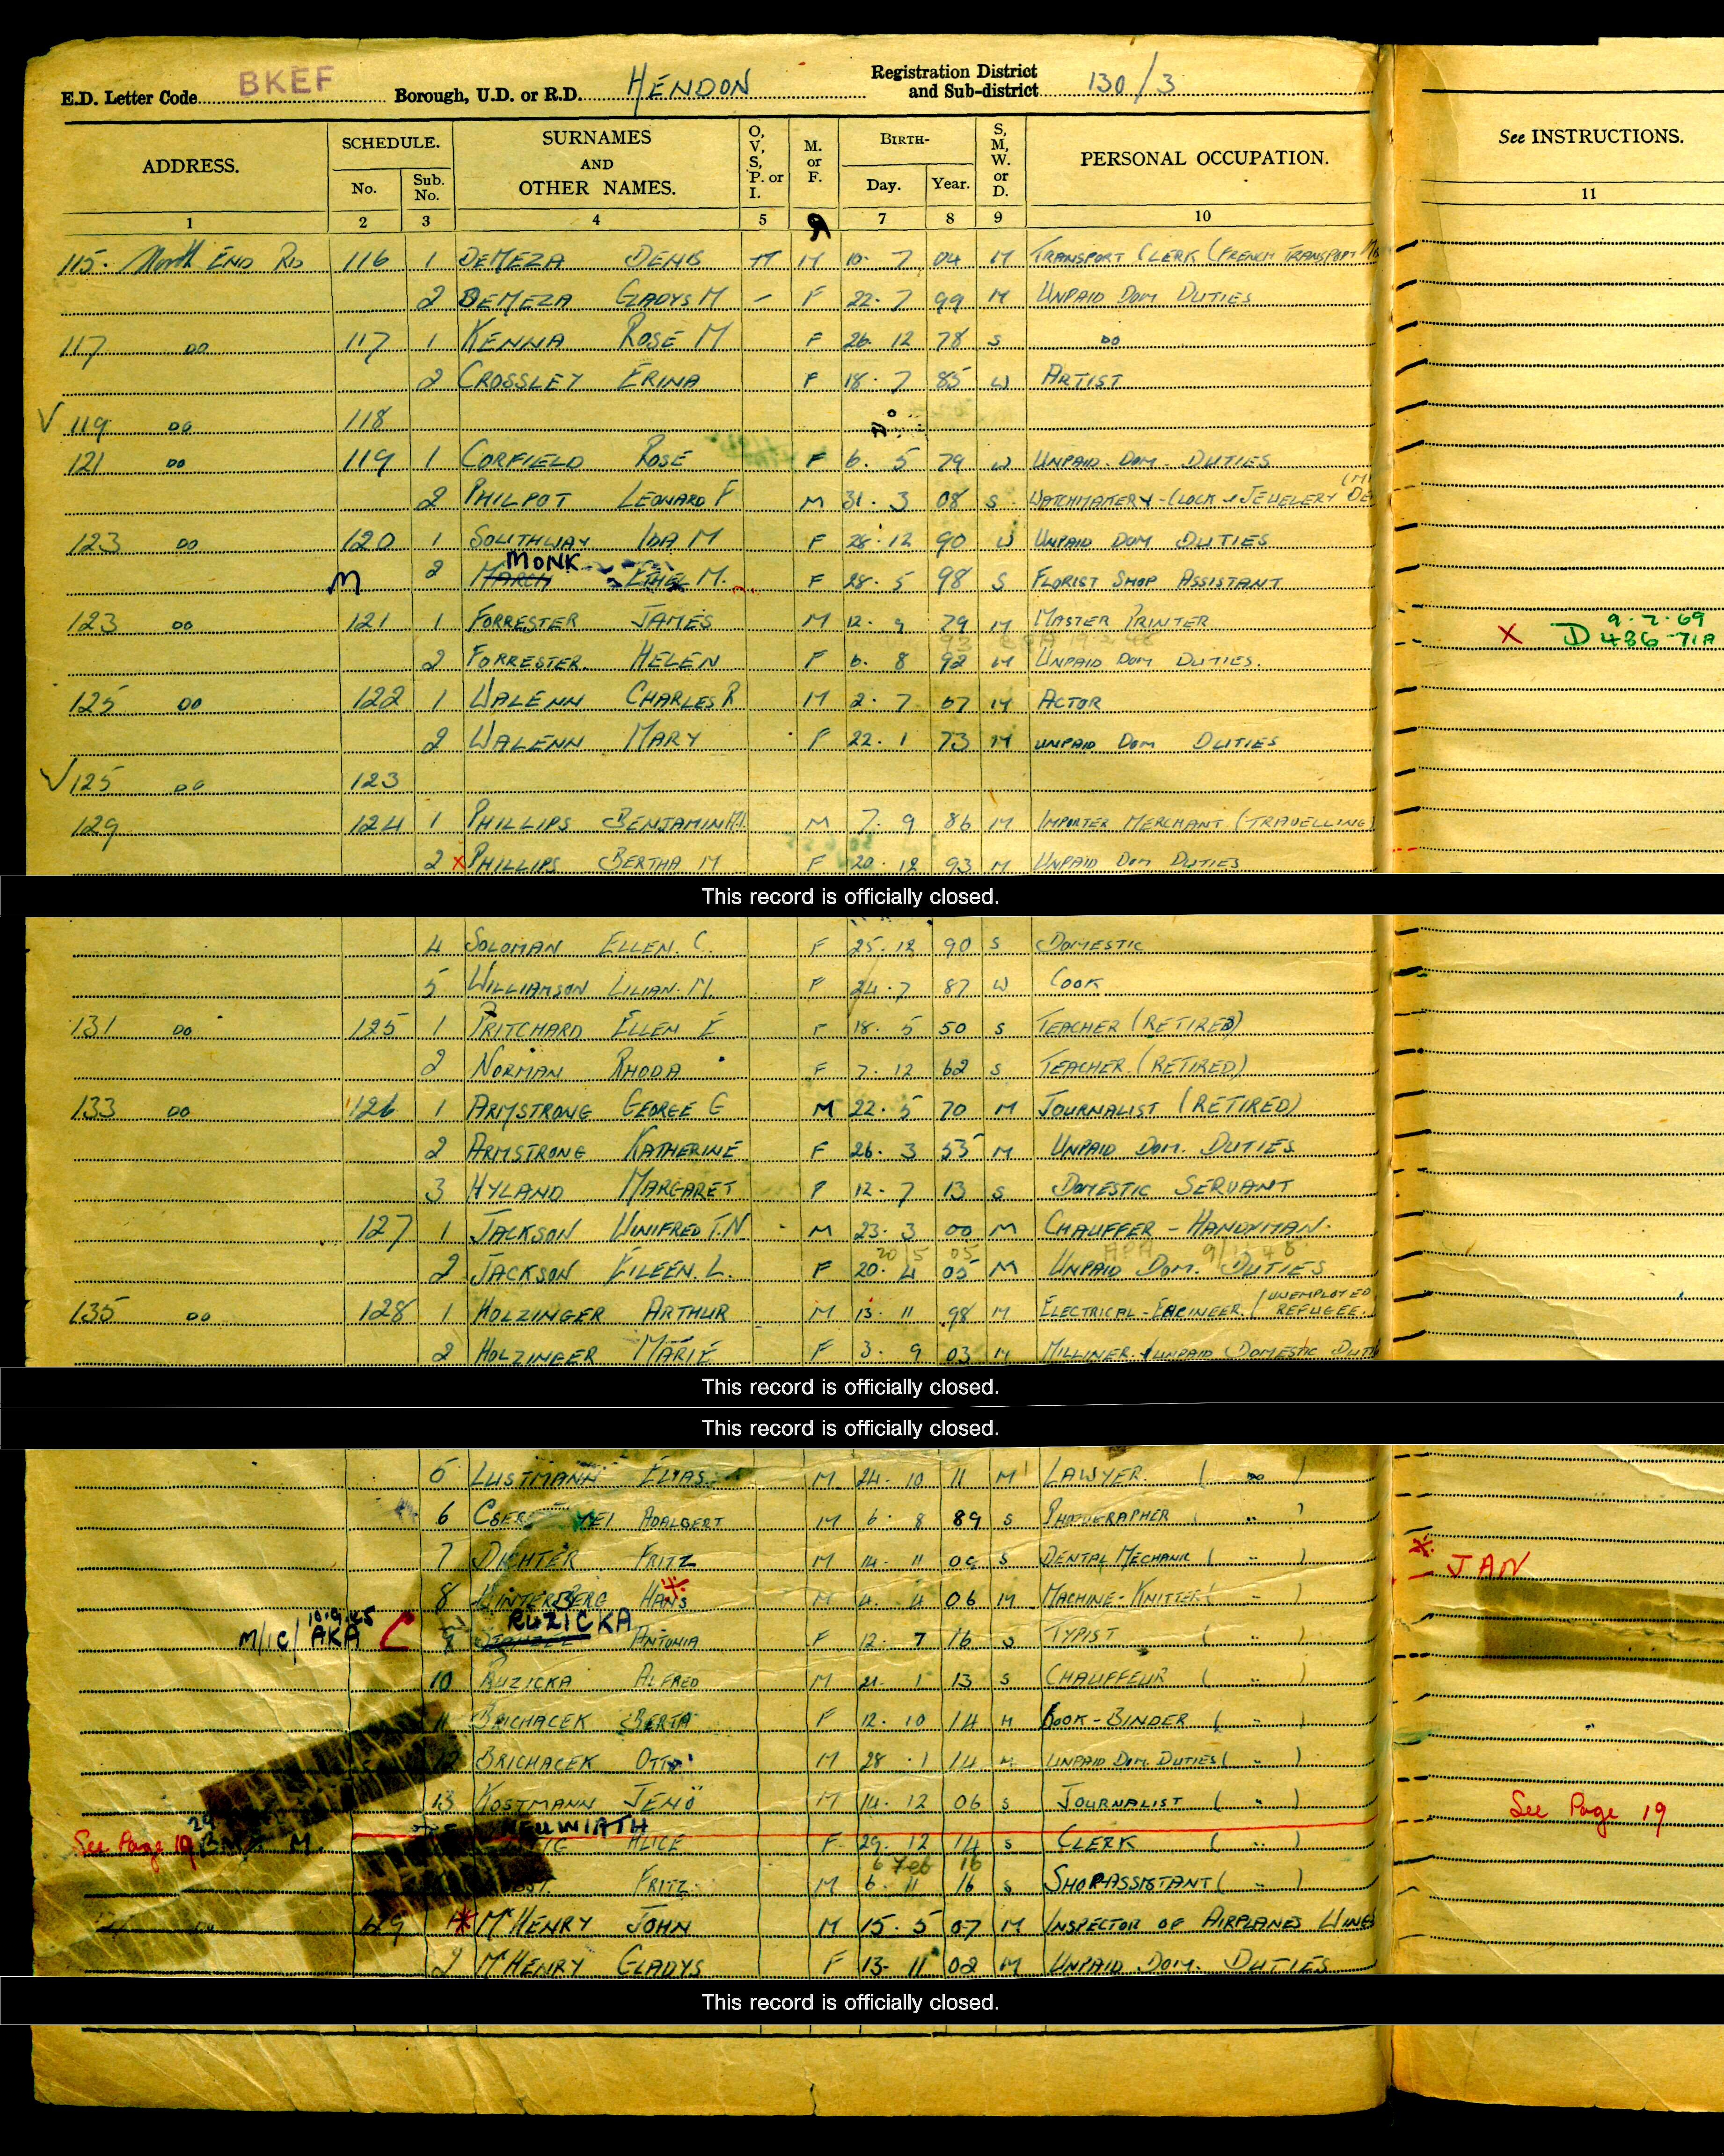 E.D. Letter Code BKEF Borough, U.D. or R.D. HENDON Registration District and Sub-district 130/3
ADDRESS. SCHEDULE. No. Sub. No. SURNAMES AND OTHER NAMES. O, V, S, P. or I. M. or F. BIRTH- Day. Year. S, M, W. or D. PERSONAL OCCUPATION. See INSTRUCTIONS.
1 2 3 4 5 7 8 9 10 11
115. North END RD 116 1 DEMEZA DENIS M 10. 7 04 M TRANSPORT CLERK (FRENCH TRANSPORT
2 DEMEZA GLADYS M - F 22. 7 99 M UNPAID DOM DUTIES
117 DO 117 1 KENNA ROSE M F 26. 12 78 S DO
2 CROSSLEY ERINA F 18. 7 85 W ARTIST
V 119 DO 118
121 DO 119 1 CORFIELD ROSE F 6. 5 79 W UNPAID. DOM. DUTIES
2 PHILPOT LEONARD F M 31. 3 08 S WATCHMAKERY-CLOCK & JEWELERY DE
123 DO 120 1 SOUTHWAY IDA M F 28. 12 90 W UNPAID DOM DUTIES
M 2 MARCH MONK ETHEL M. F 28. 5 98 S FLORIST SHOP ASSISTANT
123 DO 121 1 FORRESTER JAMES M 12. 9 79 M MASTER PRINTER
X 9.2.69 D 486-71A
2 FORRESTER HELEN F 6. 8 92 M UNPAID DOM DUTIES.
125 DO 122 1 WALENN CHARLES R M 2. 7 67 M ACTOR
2 WALENN MARY F 22. 1 73 M UNPAID DOM DUTIES
V 125 DO 123
129 124 1 PHILLIPS BENJAMIN M. M 7. 9 86 M IMPORTER MERCHANT (TRAVELLING)
2 X PHILLIPS BERTHA M F 20. 12 93 M UNPAID DOM DUTIES
This record is officially closed.
4 SOLOMAN ELLEN. C. F 25. 12 90 S DOMESTIC
5 WILLIAMSON LILIAN. M. F 24. 7 87 W COOK
131 DO 125 1 PRITCHARD ELLEN E F 18. 5 50 S TEACHER (RETIRED)
2 NORMAN RHODA F 7. 12 62 S TEACHER (RETIRED)
133 DO 126 1 ARMSTRONG GEORGE G M 22. 5 70 M JOURNALIST (RETIRED)
2 ARMSTRONG KATHERINE F 26. 3 55 M UNPAID DOM. DUTIES
3 HYLAND MARGARET F 12. 7 13 S DOMESTIC SERVANT
127 1 JACKSON WINIFRED T.N. M 23. 3 00 M CHAUFFER - HANDYMAN.
20 5 05
2 JACKSON EILEEN. L. F 20. 4 05 M UNPAID DOM. DUTIES
135 DO 128 1 HOLZINGER ARTHUR M 13. 11 98 M ELECTRICAL-ENGINEER. (UNEMPLOYED REFUGEE.)
2 HOLZINGER MARIE F 3. 9 03 M MILLINER. (UNPAID DOMESTIC DUTI
This record is officially closed.
This record is officially closed.
5 LUSTMANN ELIAS. M 24. 10 11 M LAWYER. ( DO )
6 ADALBERT M 6. 8 89 S PHOTOGRAPHER ( " )
7 DICHTER FRITZ M 14. 11 S DENTAL MECHANIC ( " )
JAN
8 WINTERBERG HANS M 4. 4 06 M MACHINE-KNITTER ( " )
10.9.45
M/IC/ AKA 9 RUZICKA ANTONIA F 12. 7 16 S TYPIST ( " )
10 RUZICKA ALFRED M 21. 1 13 S CHAUFFEUR ( " )
11 BRICHACEK BERTA F 12. 10 14 M BOOK-BINDER ( " )
12 BRICHACEK OTTO M 28. 1 14 M UNPAID DOM. DUTIES ( " )
13 KOSTMANN JENÖ M 14. 12 06 S JOURNALIST ( " )
See Page 19
NEUWIRTH
See Page 19 M. ALICE F 29. 12 14 S CLERK ( " )
6 Feb 16
FRITZ. M 6. 11 16 S SHOP-ASSISTANT ( " )
129 1 McHENRY JOHN M 15. 5 07 M INSPECTOR OF AIRPLANES WINGS
2 McHENRY GLADYS F 13. 11 02 M UNPAID. DOM. DUTIES
This record is officially closed.